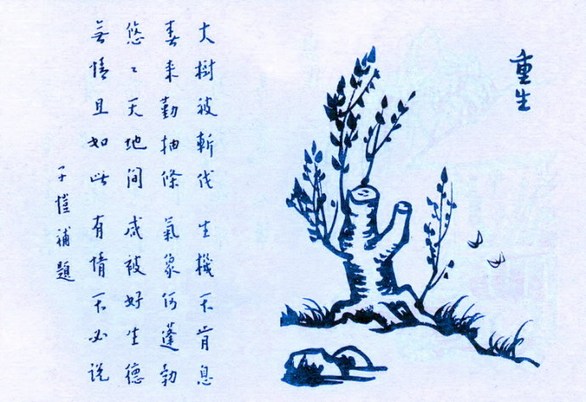 重生
大樹被斬伐 生機不肯息
春來勤抽條 氣象何蓬勃
悠々天地間 咸被好生德
無情且如此 有情不必說
子愷補題